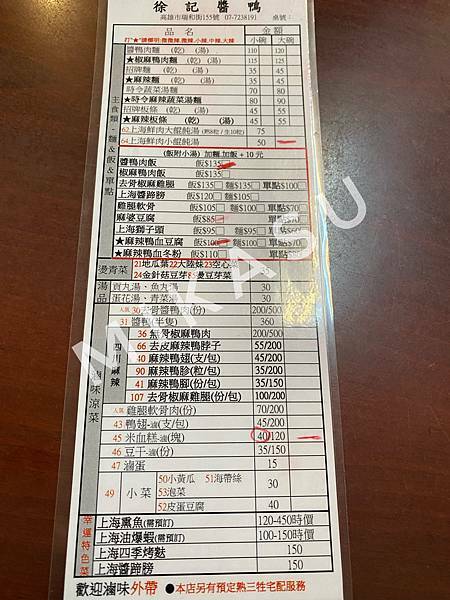 徐記醬鴨
高雄市瑞和街155號 07-7238191 桌號：
打"★"請標明:微微辣.微辣.小辣.中辣.大辣
品名 金額
小碗 大碗
醬鴨肉麵 (乾) (湯) 110 120
★椒麻鴨肉麵 (乾) (湯) 115
招牌麵 (乾) (湯) 35 45
★麻辣麵 (乾) (湯) 35 45
時令蔬菜湯麵 70 80
★時令麻辣蔬菜湯麵 80 90
招牌板條 (乾) (湯) 45 55
★麻辣板條 (乾) (湯) 45 55
62上海鮮肉大餛飩湯 75
64上海鮮肉小餛飩湯 50
主食類-麵&飯&單點
(飯附小湯) 加麵.加飯+10元
醬鴨肉飯 飯$135
椒麻鴨肉飯 飯$135
去骨椒麻雞腿 飯$135 麵$135 單點$100
上海醬蹄膀 飯$120 麵$120
雞腿軟骨 飯$105 麵$105 單點$70
麻婆豆腐 飯$85
上海獅子頭 飯$95 麵$95 單點$60
★麻辣鴨血豆腐 飯$100 麵$100 單點$70
★麻辣鴨血冬粉 飯$100 單點$70
燙青菜
21地瓜葉22大陸妹23空心菜
24金針菇豆芽85燙豆芽菜
湯品
貢丸湯、魚丸湯 30
蛋花湯、青菜湯 30
滷味涼菜
人氣 30去骨醬鴨肉(份) 200/500
31 醬鴨(半隻) 360
四川麻辣
36 無骨椒麻鴨肉 200/500
66 去皮麻辣鴨脖子 55/200
40 麻辣鴨翅(支/包) 45/200
90 麻辣鴨胗(粒/包) 35/200
41 麻辣鴨腳(份/包) 35/150
107 去骨椒麻雞腿(份/包) 100/200
人氣 雞腿軟骨肉(份) 70/200
43 鴨翅-滷(支/包) 45/200
45 米血糕-滷(塊) 40/120
46 豆干-滷(份) 35/150
47 滷蛋 15
49 小菜
50小黃瓜 51海帶絲
53泡菜 30
52皮蛋豆腐 40
幸運特色菜
上海熏魚(需預訂) 120-450時價
上海油爆蝦(需預訂) 100-150時價
上海四季烤麩 150
上海醬蹄膀 150
歡迎滷味外帶 ●本店另有預定熟三牲宅配服務
MIKASU